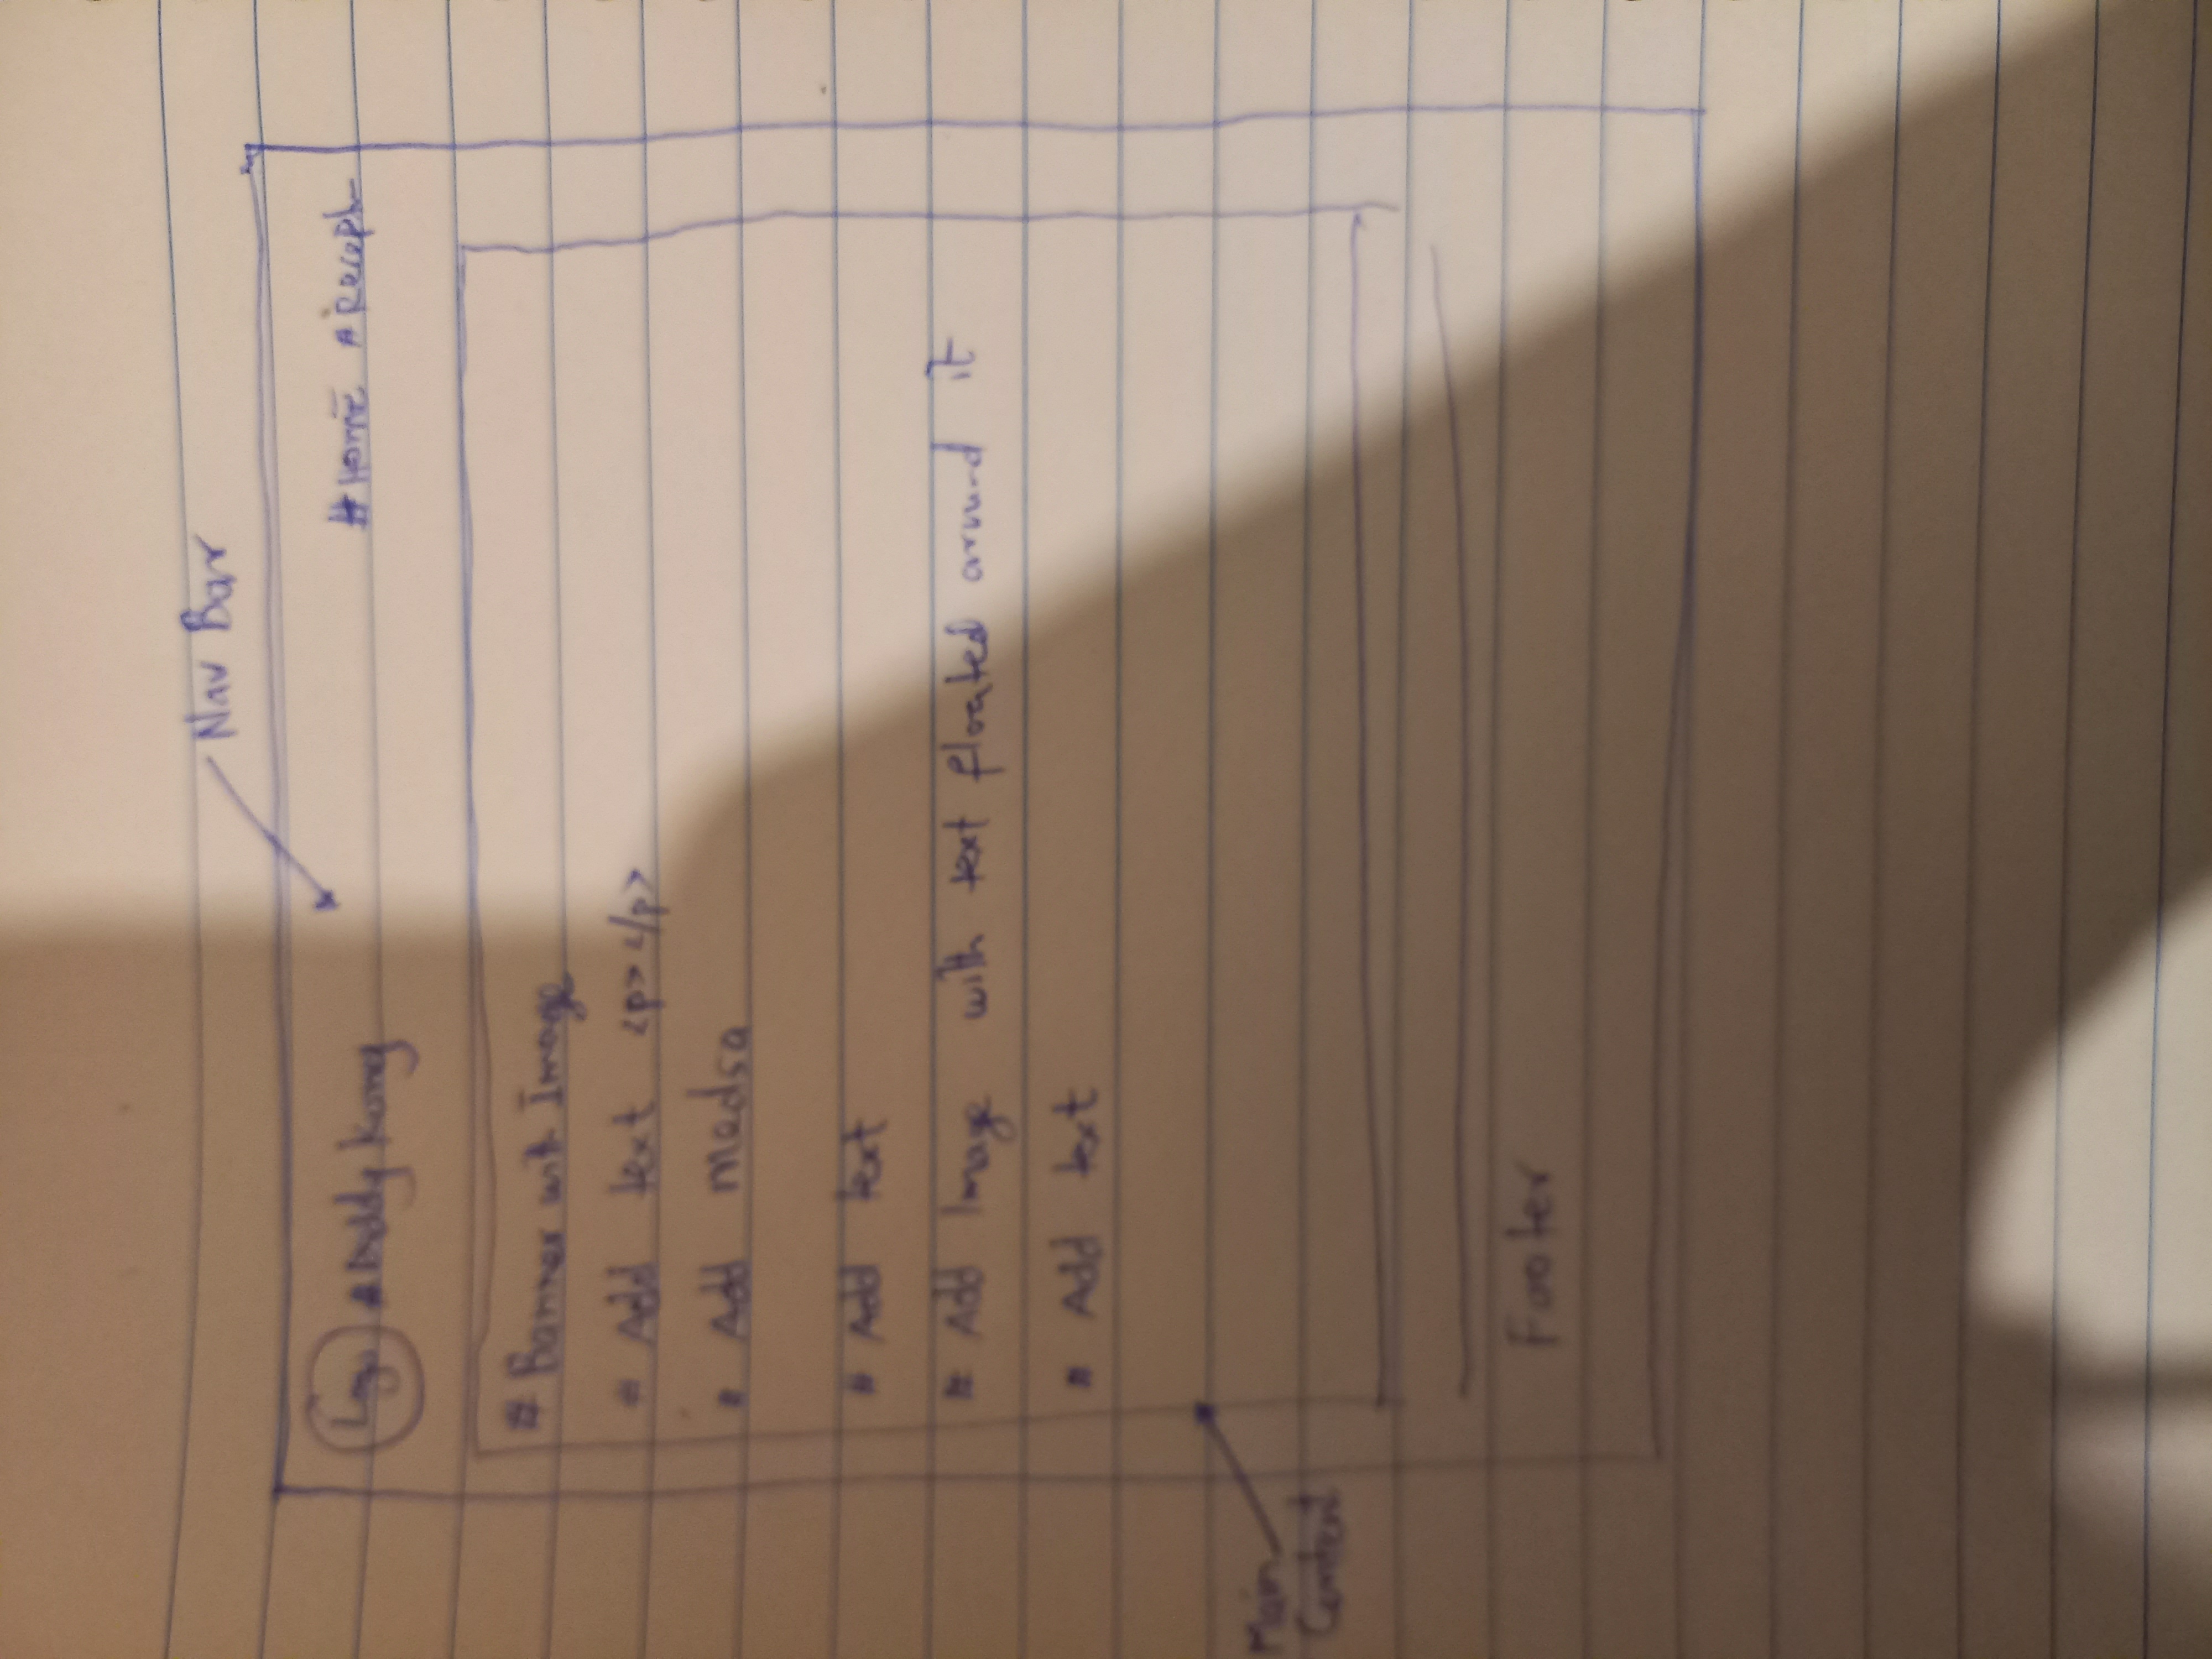 Nav Bar
Logo # Diddy Kong
# Home #
# Banner with Image
# Add text <p> </p>
# Add media
# Add text
# Add Image with text floated around it
# Add text
Main
Content
Footer